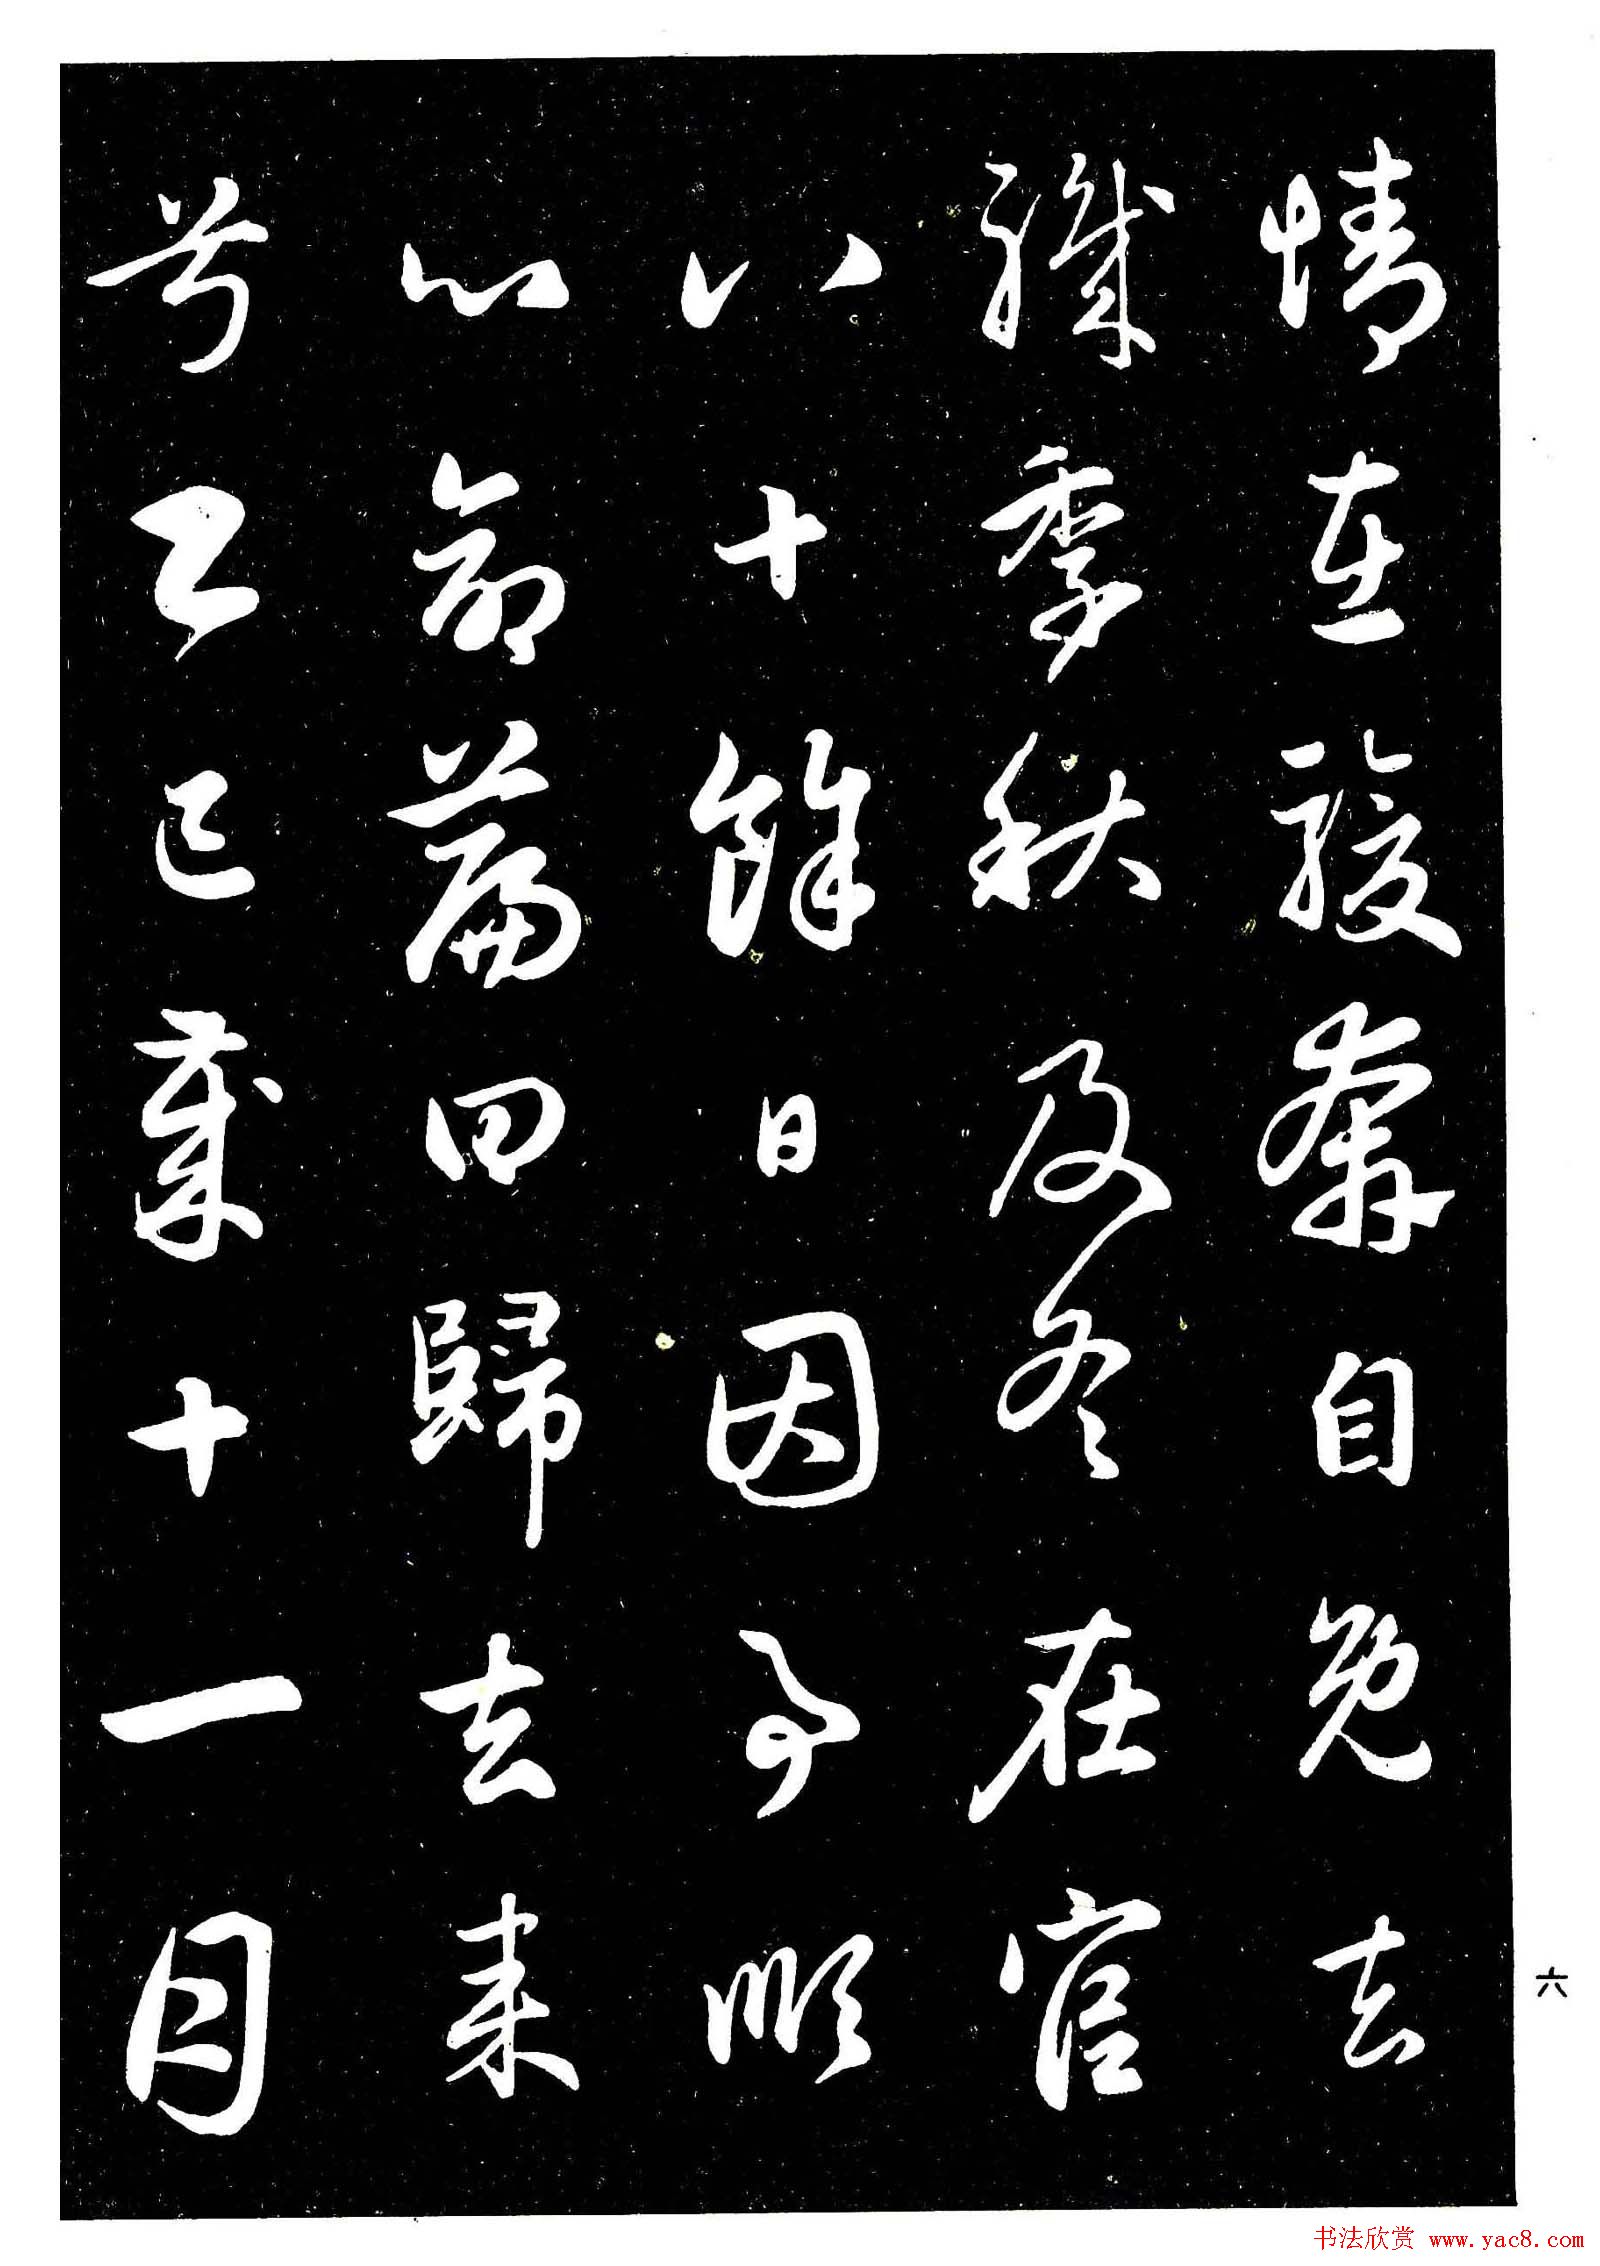 情在駿奔自免去
職季秋及冬在官
八十餘日因事順
心命篇曰歸去來
兮乙巳歲十一月
六
书法欣赏 www.yac8.com